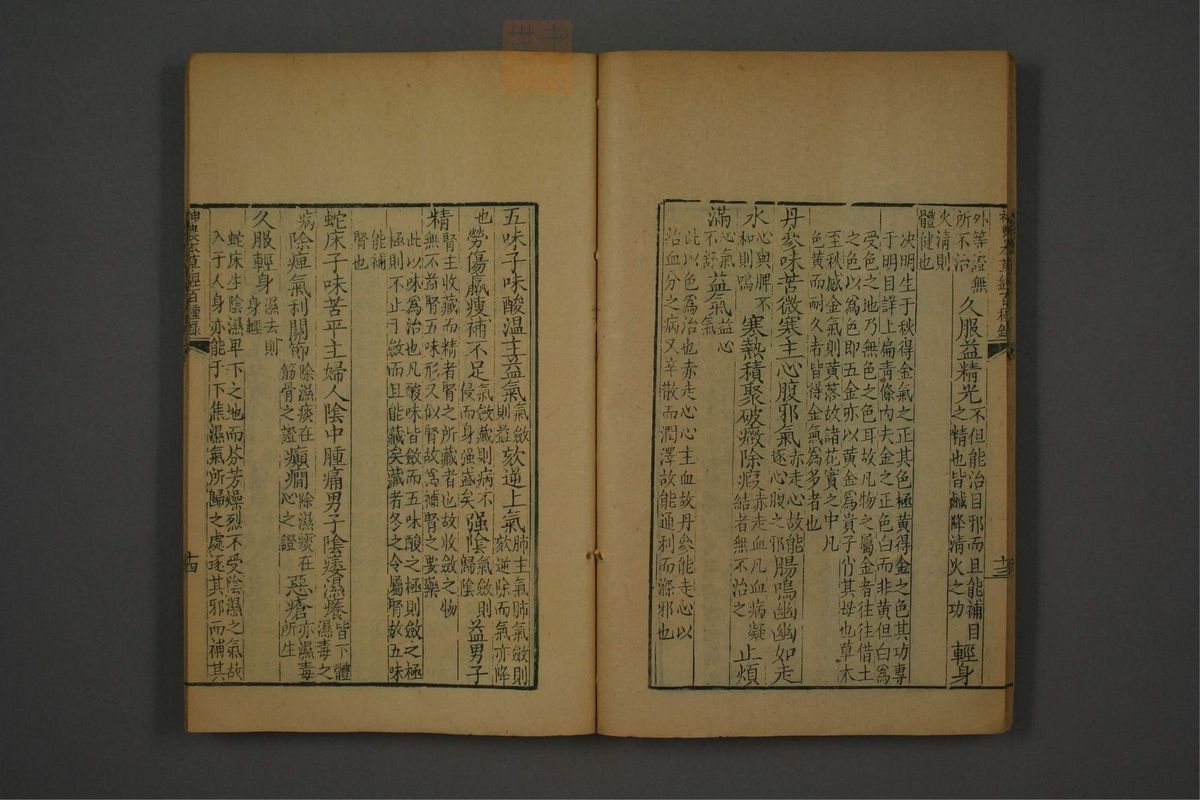 神農本草經百種錄
十三
外等證無所不治久服益精光不但能治目邪而且能補目之精也皆鹹降清火之功輕身
火清則體健也
決明生于秋得金氣之正其色極黃得金之色其功專
于明目詳上扁青條內夫金之正色白而非黃但白爲
受色之地乃無色之色耳故凡物之屬金者往往借土
之色以爲色即五金亦以黃金爲貴子肖其母也草木
至秋感金氣則黃落故諸花實之中凡
色黃而耐久者皆得金氣爲多者也
丹參味苦微寒主心腹邪氣赤走心故能逐心腹之邪腸鳴幽幽如走
水心與脾不和則鳴寒熱積聚破癥除瘕赤走血凡血病凝結者無不治之止煩
滿心氣不舒益氣益心氣
此以色爲治也赤走心心主血故丹參能走心以
治血分之病又辛散而潤澤故能通利而滌邪也
五味子味酸溫主益氣氣斂則益欬逆上氣肺主氣肺氣斂則欬逆除而氣亦降
也勞傷羸瘦補不足氣斂藏則病不侵而身强盛矣强陰氣斂則歸陰益男子
精腎主收藏而精者腎之所藏者也故收斂之物無不益腎五味形又似腎故爲補腎之要藥
此以味爲治也凡酸味皆斂而五味酸之極則斂之極
極則不止于斂而且能藏矣藏者冬之令屬腎故五味
能補腎也
蛇床子味苦平主婦人陰中腫痛男子陰痿濕癢皆下體濕毒之
病除痺氣利關節除濕痰在筋骨之證癲癇除濕痰在心之證惡瘡亦濕毒所生
久服輕身濕去則身輕
蛇床生陰濕卑下之地而芬芳燥烈不受陰濕之氣故
入于人身亦能于下焦濕氣所歸之處逐其邪而補其
神農本草經百種錄
十四